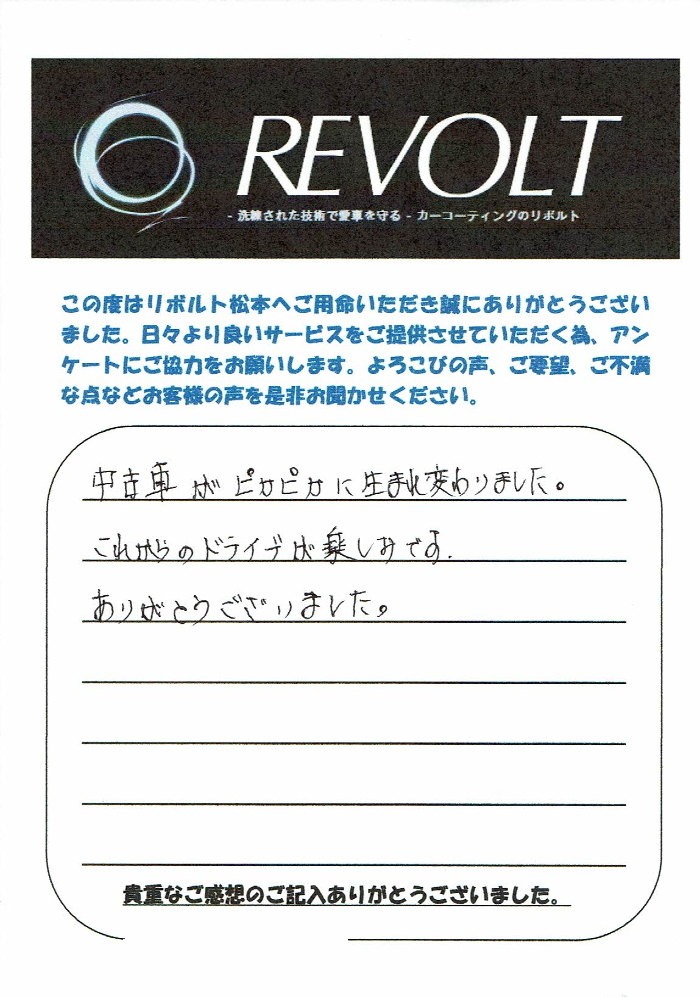 REVOLT
- 洗練された技術で愛車を守る - カーコーティングのリボルト
この度はリボルト松本へご用命いただき誠にありがとうござい
ました。日々より良いサービスをご提供させていただく為、アン
ケートにご協力をお願いします。よろこびの声、ご要望、ご不満
な点などお客様の声を是非お聞かせください。
中古車がピカピカに生まれ変わりました。
これからのドライブが楽しみです.
ありがとうございました。
貴重なご感想のご記入ありがとうございました。